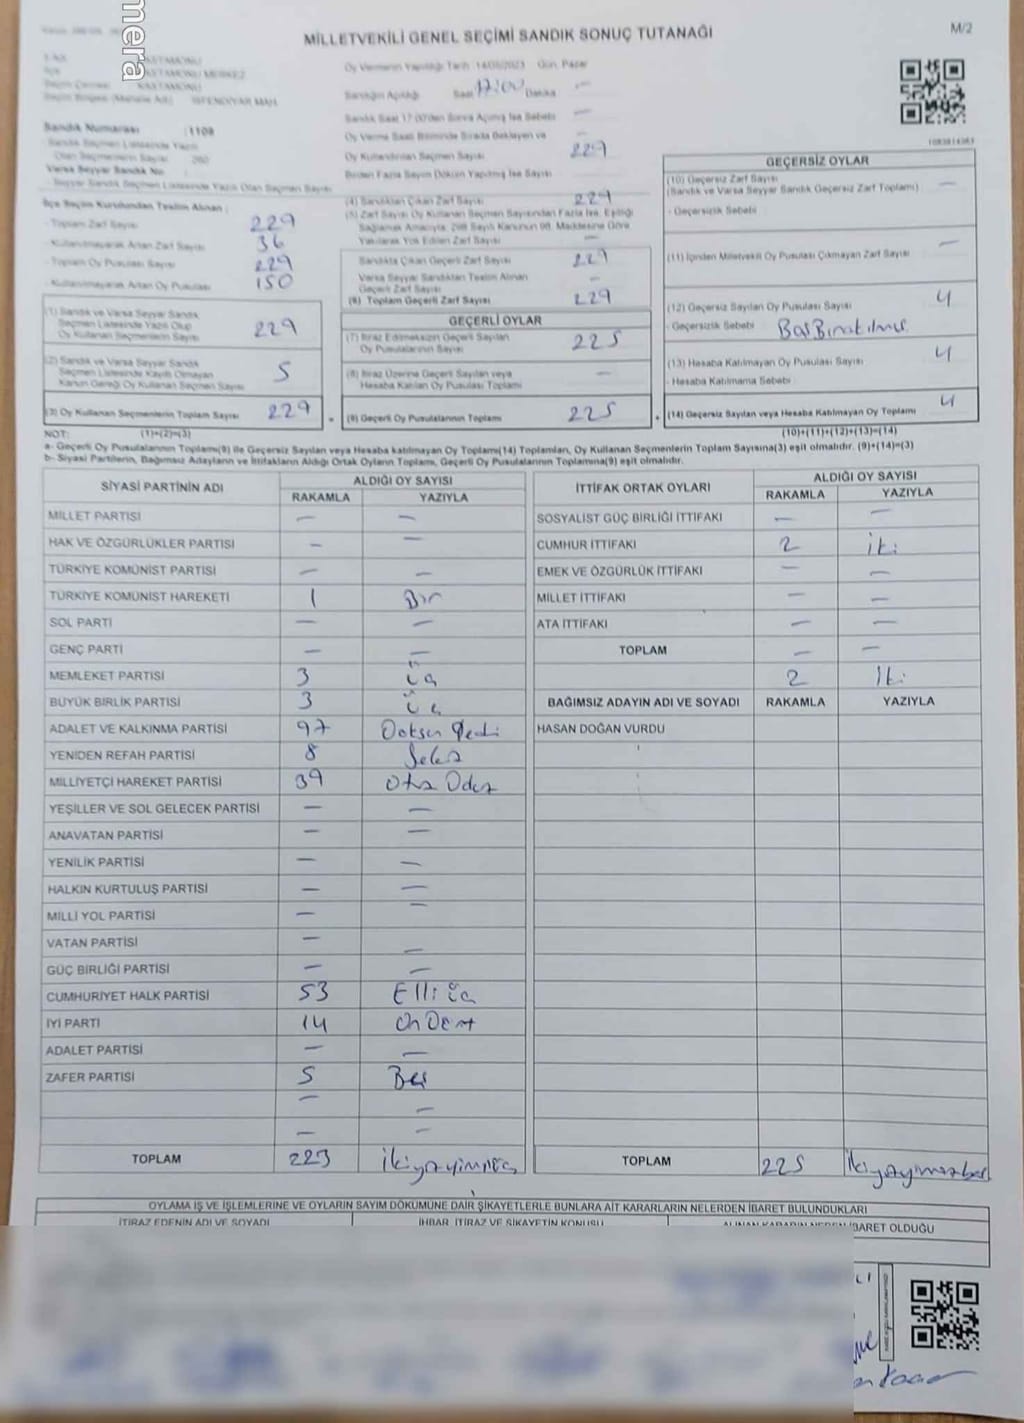 mera
MİLLETVEKİLİ GENEL SEÇİMİ SANDIK SONUÇ TUTANAĞI
M/2
KASTAMONU
KASTAMONU MERKEZ
KASTAMONU
Seçim Bölgesi (Mahalle Adı) : İSFENDİYAR MAH.
Sandık Numarası : 1109
Sandık Seçmen Listesinde Yazılı
Olan Seçmenlerin Sayısı 260
Varsa Seyyar Sandık No
Seyyar Sandık Seçmen Listesinde Yazılı Olan Seçmen Sayısı
İlçe Seçim Kurulundan Teslim Alınan :
- Toplam Zarf Sayısı 229
- Kullanılmayarak Artan Zarf Sayısı 36
- Toplam Oy Pusulası Sayısı 229
- Kullanılmayarak Artan Oy Pusulası 150
(1) Sandık ve Varsa Seyyar Sandık
Seçmen Listesinde Yazılı Olup
Oy Kullanan Seçmenlerin Sayısı 229
(2) Sandık ve Varsa Seyyar Sandık
Seçmen Listesinde Kayıtlı Olmayan
Kanun Gereği Oy Kullanan Seçmen Sayısı 5
(3) Oy Kullanan Seçmenlerin Toplam Sayısı 229
Oy Vermenin Yapıldığı Tarih : 14/05/2023 Gün: Pazar
Sandığın Açıldığı Saat 17:00 Dakika —
Sandık Saat 17:00'den Sonra Açılmış İse Sebebi —
Oy Verme Saati Bitiminde Sırada Bekleyen ve
Oy Kullandırılan Seçmen Sayısı 229
Birden Fazla Sayım Döküm Yapılmış İse Sayısı
(4) Sandıktan Çıkan Zarf Sayısı 229
(5) Zarf Sayısı Oy Kullanan Seçmen Sayısından Fazla İse, Eşitliği
Sağlamak Amacıyla, 298 Sayılı Kanunun 98. Maddesine Göre
Yakılarak Yok Edilen Zarf Sayısı —
Sandıkta Çıkan Geçerli Zarf Sayısı 229
Varsa Seyyar Sandıktan Teslim Alınan
Geçerli Zarf Sayısı —
(6) Toplam Geçerli Zarf Sayısı 229
GEÇERLİ OYLAR
(7) İtiraz Edilmeksizin Geçerli Sayılan
Oy Pusulalarının Sayısı 225
(8) İtiraz Üzerine Geçerli Sayılan veya
Hesaba Katılan Oy Pusulası Toplamı —
(9) Geçerli Oy Pusulalarının Toplamı 225
GEÇERSİZ OYLAR
(10) Geçersiz Zarf Sayısı
(Sandık ve Varsa Seyyar Sandık Geçersiz Zarf Toplamı) —
- Geçersizlik Sebebi
(11) İçinden Milletvekili Oy Pusulası Çıkmayan Zarf Sayısı —
(12) Geçersiz Sayılan Oy Pusulası Sayısı 4
- Geçersizlik Sebebi Boş Bırakılmış
(13) Hesaba Katılmayan Oy Pusulası Sayısı 4
- Hesaba Katılmama Sebebi
(14) Geçersiz Sayılan veya Hesaba Katılmayan Oy Toplamı 4
NOT: (1)+(2)=(3) (10)+(11)+(12)+(13)=(14)
a- Geçerli Oy Pusulalarının Toplamı(9) ile Geçersiz Sayılan veya Hesaba katılmayan Oy Toplamı(14) Toplamları, Oy Kullanan Seçmenlerin Toplam Sayısına(3) eşit olmalıdır. (9)+(14)=(3)
b- Siyasi Partilerin, Bağımsız Adayların ve İttifakların Aldığı Ortak Oyların Toplamı, Geçerli Oy Pusulalarının Toplamına(9) eşit olmalıdır.
SİYASİ PARTİNİN ADI ALDIĞI OY SAYISI
RAKAMLA YAZIYLA
MİLLET PARTİSİ — —
HAK VE ÖZGÜRLÜKLER PARTİSİ — —
TÜRKİYE KOMÜNİST PARTİSİ — —
TÜRKİYE KOMÜNİST HAREKETİ 1 Bir
SOL PARTİ — —
GENÇ PARTİ — —
MEMLEKET PARTİSİ 3 üç
BÜYÜK BİRLİK PARTİSİ 3 üç
ADALET VE KALKINMA PARTİSİ 97 Doksan Yedi
YENİDEN REFAH PARTİSİ 8 Sekiz
MİLLİYETÇİ HAREKET PARTİSİ 39 Otuz Dokuz
YEŞİLLER VE SOL GELECEK PARTİSİ — —
ANAVATAN PARTİSİ — —
YENİLİK PARTİSİ — —
HALKIN KURTULUŞ PARTİSİ — —
MİLLİ YOL PARTİSİ — —
VATAN PARTİSİ — —
GÜÇ BİRLİĞİ PARTİSİ — —
CUMHURİYET HALK PARTİSİ 53 Elli üç
İYİ PARTİ 14 On Dört
ADALET PARTİSİ — —
ZAFER PARTİSİ 5 Beş
— —
— —
TOPLAM 223 ikiyüzyirmiüç
İTTİFAK ORTAK OYLARI ALDIĞI OY SAYISI
RAKAMLA YAZIYLA
SOSYALİST GÜÇ BİRLİĞİ İTTİFAKI — —
CUMHUR İTTİFAKI 2 iki
EMEK VE ÖZGÜRLÜK İTTİFAKI — —
MİLLET İTTİFAKI — —
ATA İTTİFAKI — —
TOPLAM — —
2 İki
BAĞIMSIZ ADAYIN ADI VE SOYADI RAKAMLA YAZIYLA
HASAN DOĞAN VURDU
TOPLAM 225 ikiyüzyirmibeş
OYLAMA İŞ VE İŞLEMLERİNE VE OYLARIN SAYIM DÖKÜMÜNE DAİR ŞİKAYETLERLE BUNLARA AİT KARARLARIN NELERDEN İBARET BULUNDUKLARI
İTİRAZ EDENİN ADI VE SOYADI İHBAR, İTİRAZ VE ŞİKAYETİN KONUSU ALINAN KARARIN NEDEN İBARET OLDUĞU